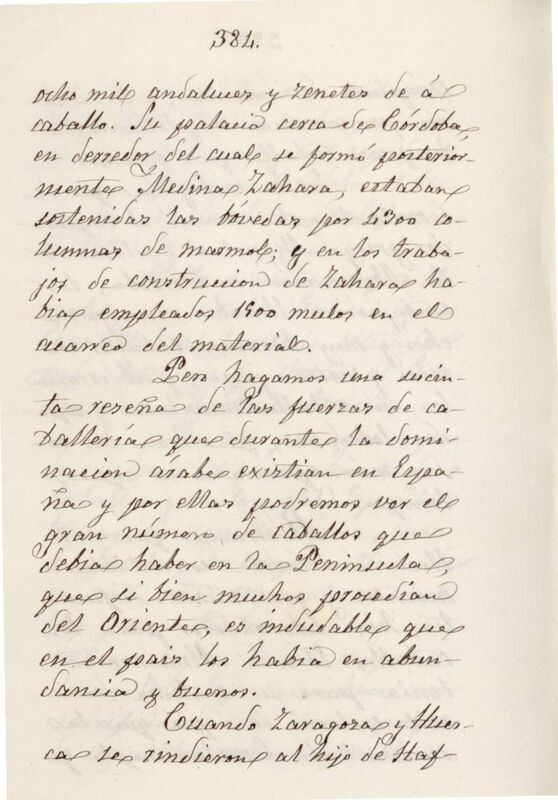 384.
ocho mil andaluces y zenetes de á
caballo. Su palacio cerca de Córdoba,
en derredor del cual se formó posterior-
mente Medina Zahara, estaban
sostenidas las bóvedas por 4300 co-
lumnas de marmol; y en los traba-
jos de construccion de Zahara ha-
bia empleados 1500 mulos en el
acarreo del material.
Pero hagamos una sucin-
ta reseña de las fuerzas de ca-
balleria que durante la domi-
nacion árabe existian en Espa-
ña y por ellas podremos ver el
gran número de caballos que
debia haber en la Peninsula,
que si bien muchos procedian
del Oriente, es indudable que
en el pais los habia en abun-
dancia y buenos.
Cuando Zaragoza y Hues-
ca se rindieron al hijo de Haf-